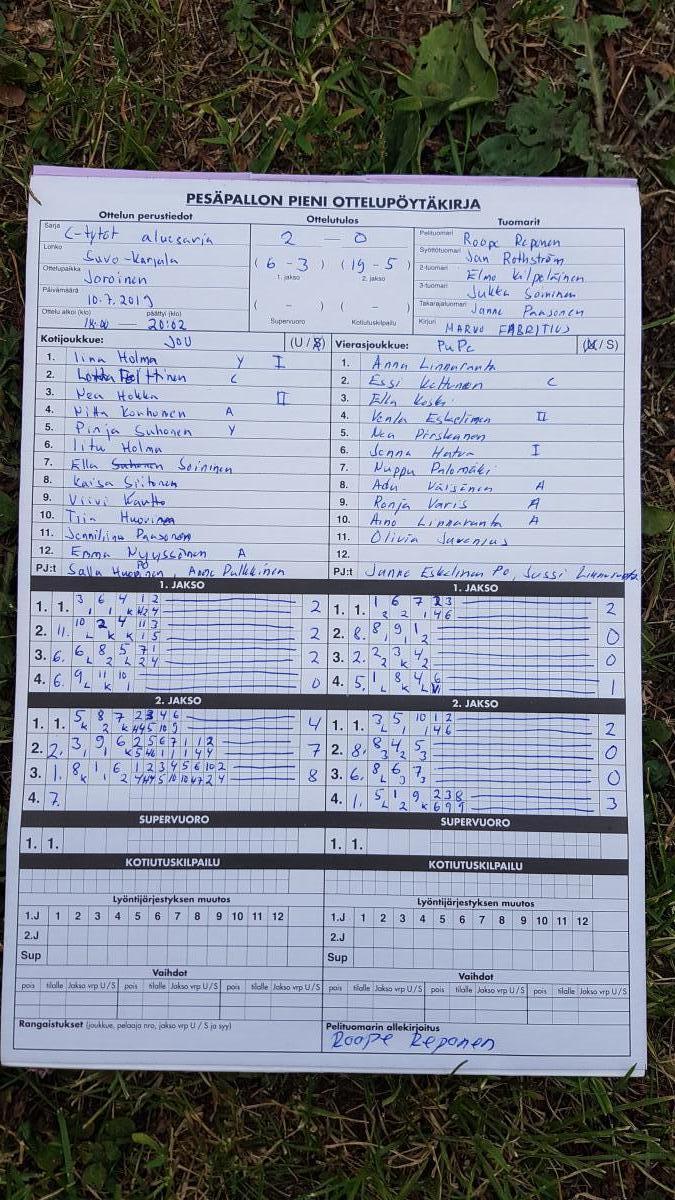 PESÄPALLON PIENI OTTELUPÖYTÄKIRJA
Ottelun perustiedot
Sarja C-tytöt aluesarja
Lohko Savo-Karjala
Ottelupaikka Joroinen
Päivämäärä 10.7.2019
Ottelu alkoi (klo) päättyi (klo)
18:00 — 20:02
Ottelutulos
2 — 0
(6 - 3) (19 - 5)
1. jakso 2. jakso
( - ) ( - )
Supervuoro Kotiutuskilpailu
Tuomarit
Pelituomari Roope Reponen
Syöttötuomari Jan Rothström
2-tuomari Elmo Kilpeläinen
3-tuomari Jukka Soininen
Takarajatuomari Janne Paasonen
Kirjuri MARVO FABRITIUS
Kotijoukkue: JOU (U / S)
1. Iina Holma Y I
2. C
3. Nea Hokka II
4. A
5. Pinja Suhonen Y
6. Iitu Holma
7. Ella Soininen
8. Kaisa Siitonen
9. Viivi Kautto
10. Tiia Huovinen
11. Jenniliina Paasonen
12. Emma Nyyssönen A
PJ:t Salla PO, Anne Pulkkinen
Vierasjoukkue: PuPe (U / S)
1. Annu Linnuranta
2. Essi Kettunen C
3. Ella Koski
4. Venla Eskelinen II
5. Nea Pirskanen
6. Jenna I
7. Nuppu Palomäki
8. Väisänen A
9. Ronja Varis A
10. Aino Linnaranta A
11. Olivia Juvenius
12.
PJ:t Janne Eskelinen PO, Jussi
1. JAKSO
1. 1. 3 6 4 1 2 2
2. 11. 10 2 4 11 3 2
3. 6. 6 8 5 7 1 2
4. 6. 9 11 10 0
1. JAKSO
1. 1. 1 6 7 2 3 2
2. 8. 8 9 1 0
3. 2. 2 3 4 0
4. 5. 1 8 4 6 1
2. JAKSO
1. 1. 5 8 7 2 3 4 6 4
2. 2. 3 9 6 2 5 6 7 1 1 2 7
3. 1. 8 1 6 1 2 3 4 5 6 10 2 8
4. 7.
2. JAKSO
1. 1. 3 5 10 1 2 2
2. 8. 8 4 5 0
3. 6. 8 6 7 0
4. 1. 5 1 9 2 3 8 3
SUPERVUORO
1. 1.
SUPERVUORO
1. 1.
KOTIUTUSKILPAILU
KOTIUTUSKILPAILU
Lyöntijärjestyksen muutos
1.J 1 2 3 4 5 6 7 8 9 10 11 12
2.J
Sup
Lyöntijärjestyksen muutos
1.J 1 2 3 4 5 6 7 8 9 10 11 12
2.J
Sup
Vaihdot
pois tilalle Jakso vrp U / S pois tilalle Jakso vrp U / S pois tilalle Jakso vrp U / S
Vaihdot
pois tilalle Jakso vrp U / S pois tilalle Jakso vrp U / S pois tilalle Jakso vrp U / S
Rangaistukset (joukkue, pelaaja nro, jakso vrp U / S ja syy)
Pelituomarin allekirjoitus
Roope Reponen